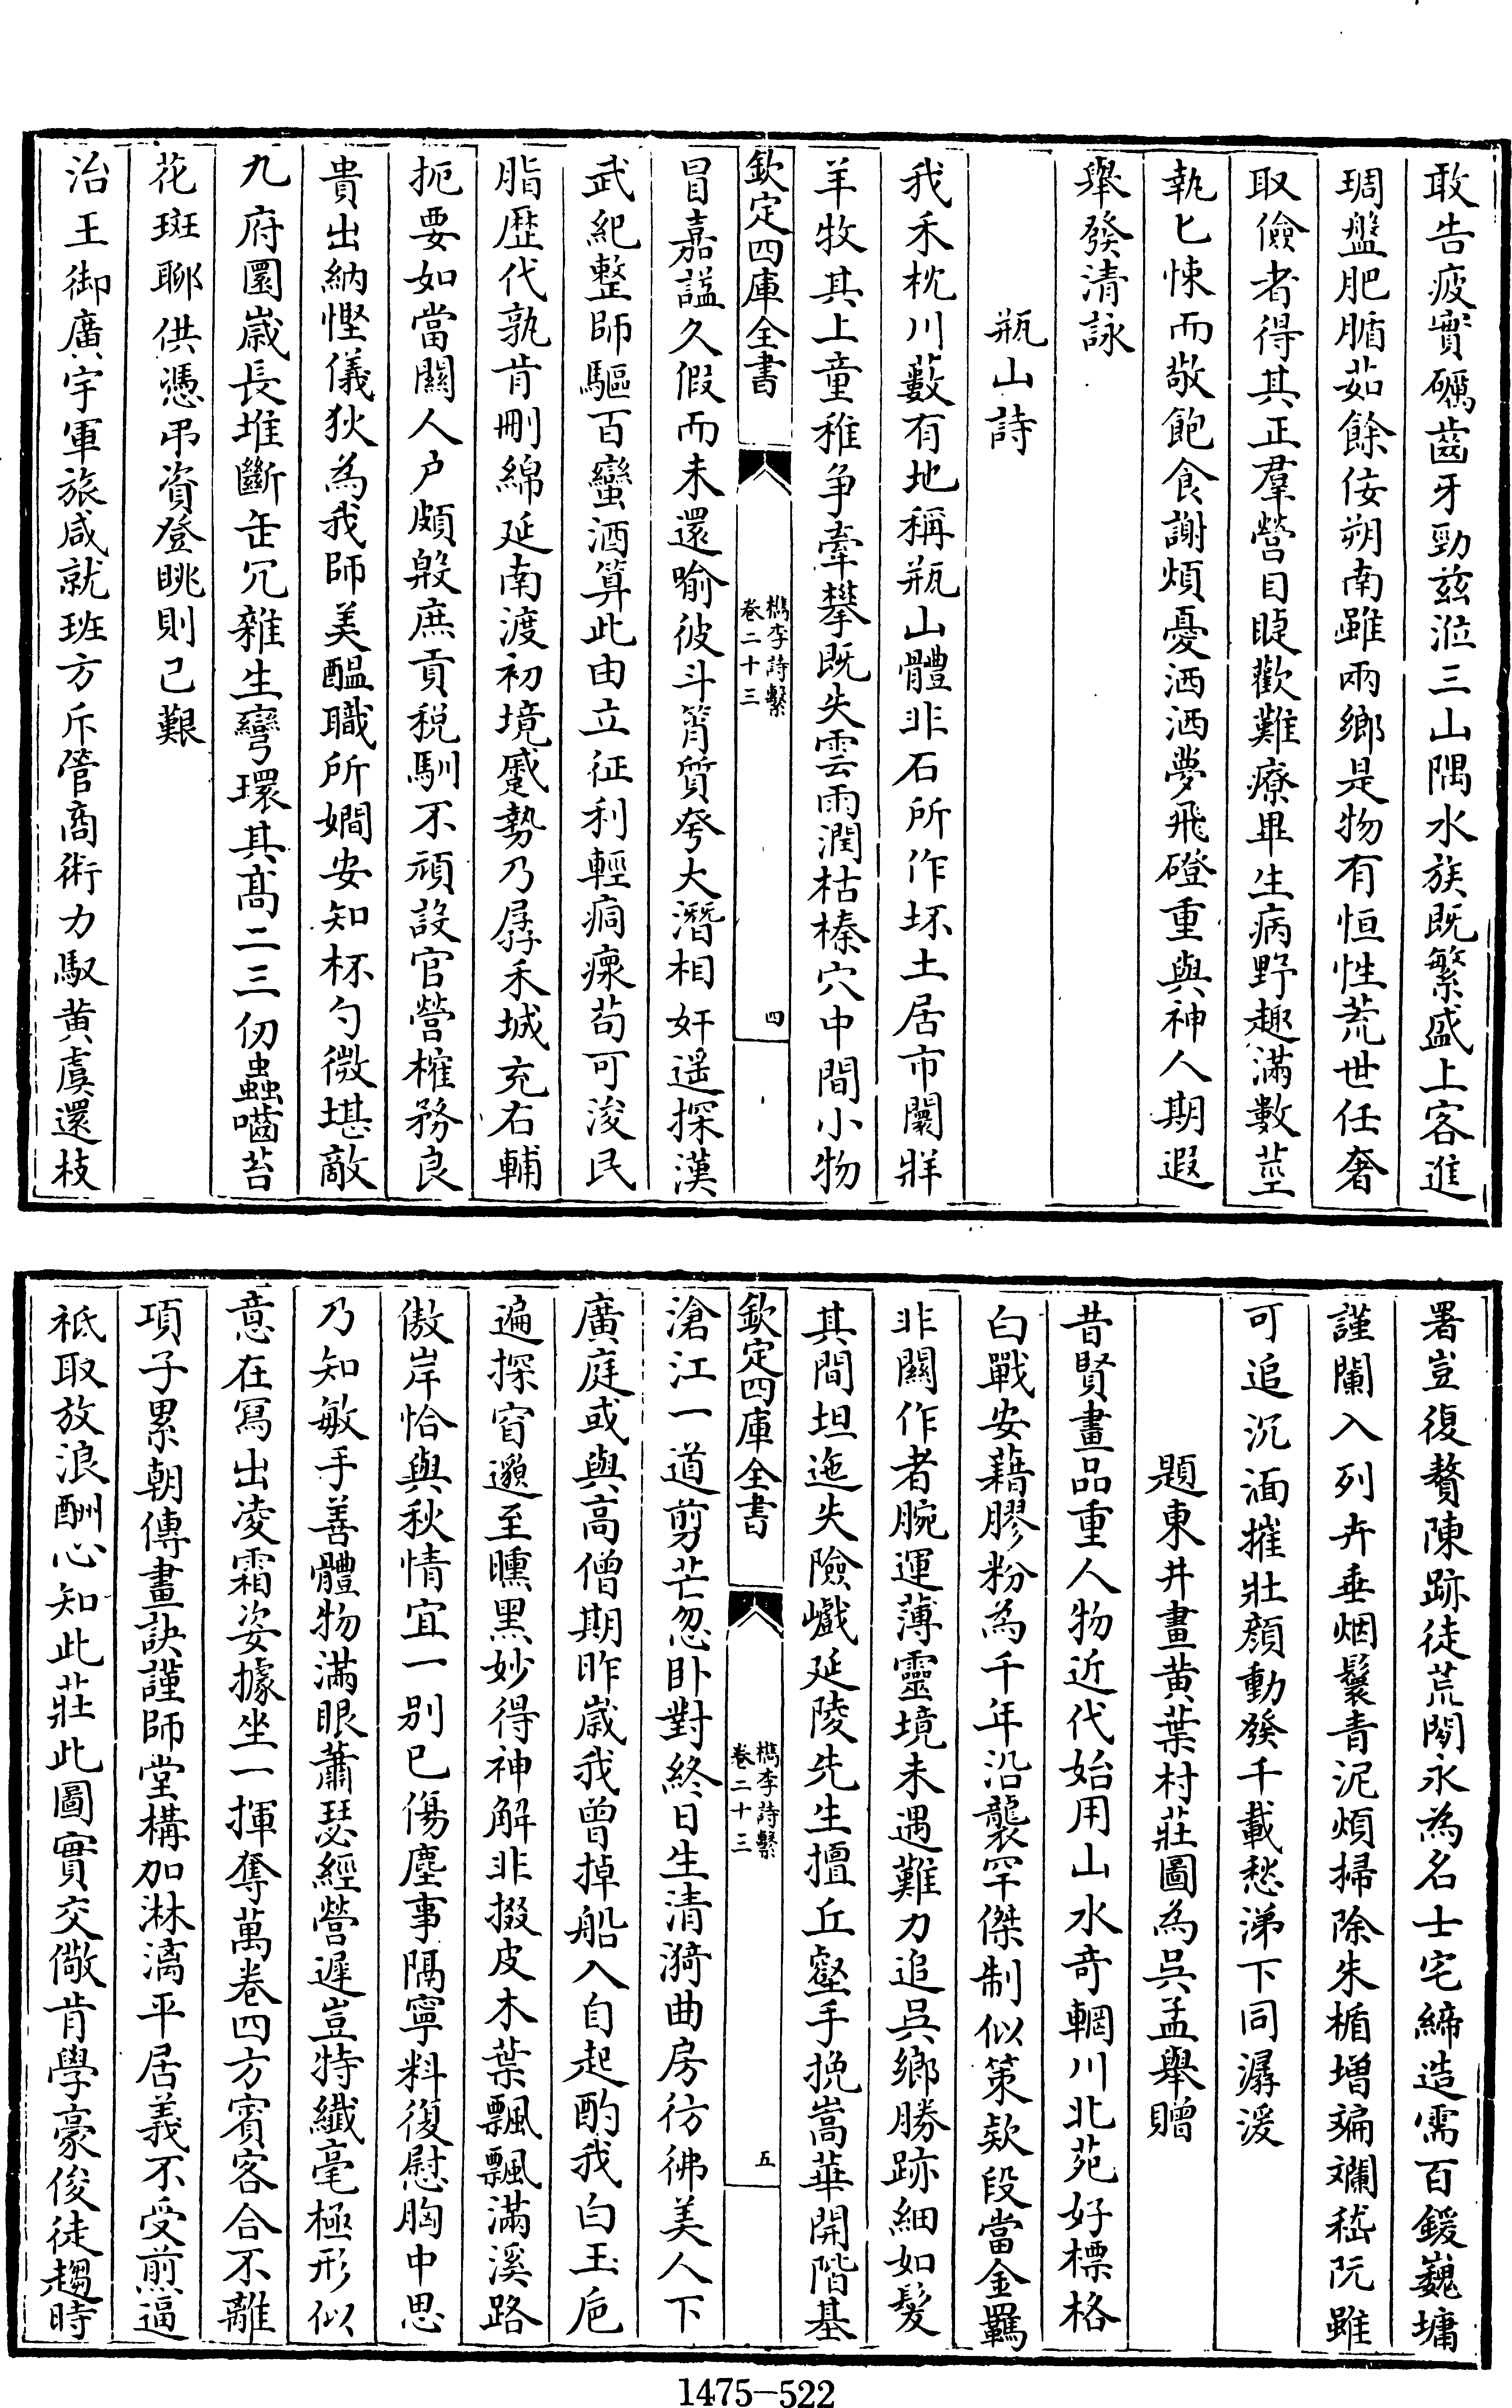 敢告疲實礪齒牙勁茲涖三山隅水族既繁盛上客進
琱盤肥腯茹餘侫朔南雖兩鄉是物有恒性荒世任奢
取儉者得其正羣營目睫歡難療畢生病野趣滿數莖
執匕悚而敬飽食謝煩憂洒洒夢飛磴重與神人期遐
舉發清詠
瓶山詩
我禾枕川藪有地稱瓶山體非石所作坏土居市闤牂
羊牧其上童稚争牽攀既失雲雨潤枯榛穴中間小物
欽定四庫全書
檇李詩繫
卷二十三
四
冒嘉謚久假而未還喻彼斗筲質夸大潛相奸遥探漢
武紀整師驅百蠻酒算此由立征利輕痌瘝苟可浚民
脂歷代孰肯刪綿延南渡初境蹙勢乃孱禾城充右輔
扼要如當關人户頗殷庶貢税馴不頑設官營榷務良
貴出納慳儀狄為我師美醖職所嫺安知杯勺微堪敵
九府圜歲長堆斷缶冗雜生彎環其高二三仞蟲囓苔
花斑聊供憑弔資登眺則已艱
治王御廣宇軍旅咸就班方斥管商術力馭黄虞還枝
署豈復贅陳跡徒荒閟永為名士宅締造需百鍰巍墉
謹闌入列卉垂烟鬟青泥煩掃除朱楯增斒斕嵇阮雖
可追沉湎摧壯顏動發千載愁涕下同潺湲
題東井畫黄葉村莊圖為呉孟舉贈
昔賢畫品重人物近代始用山水竒輞川北苑好標格
白戰安藉膠粉為千年沿襲罕傑制似策欵段當金羈
非關作者腕運薄靈境未遇難力追呉鄉勝跡細如髮
其間坦迤失險巇延陵先生擅丘壑手挽嵩華開階基
欽定四庫全書
檇李詩繫
卷二十三
五
滄江一道剪芒忽卧對終日生清漪曲房彷彿美人下
廣庭或與高僧期昨歲我曾掉船入自起酌我白玉巵
遍探窅邈至曛黑妙得神解非掇皮木葉飄飄滿溪路
傲岸恰與秋情宜一别已傷塵事隔寧料復慰胸中思
乃知敏手善體物滿眼蕭瑟經營遲豈特纖毫極形似
意在寫出凌霜姿據坐一揮奪萬卷四方賓客合不離
項子累朝傳畫訣謹師堂構加淋漓平居義不受煎逼
祗取放浪酬心知此莊此圖實交儆肯學豪俊徒趨時
1475-522